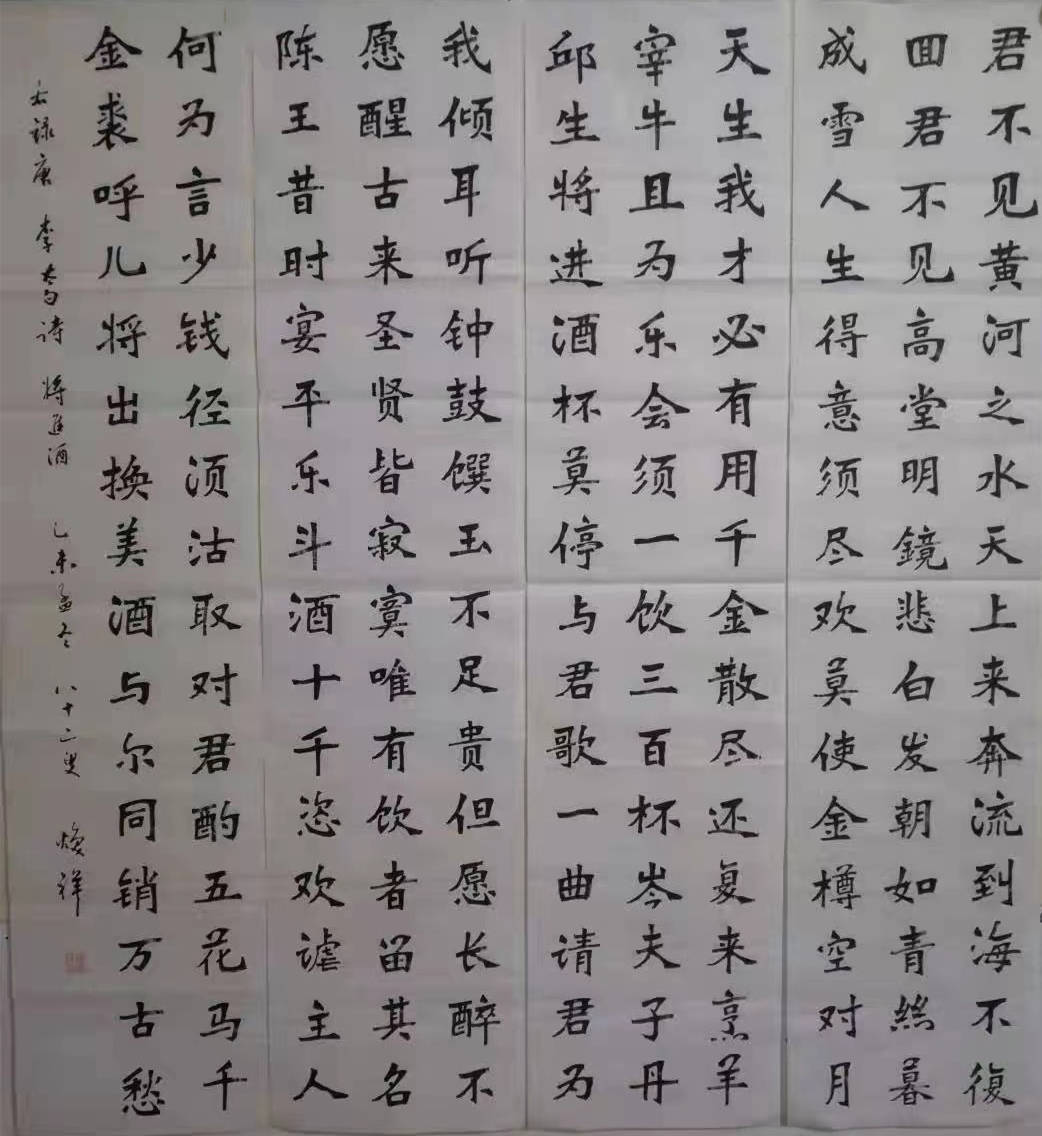 君不见黄河之水天上来奔流到海不復
囬君不见高堂明鏡悲白发朝如青絲暮
成雪人生得意须尽欢莫使金樽空对月
天生我才必有用千金散尽还复来烹羊
宰牛且为乐会须一饮三百杯岑夫子丹
邱生将进酒杯莫停与君歌一曲请君为
我倾耳听钟鼓馔玉不足贵但愿长醉不
愿醒古来圣贤皆寂寞唯有饮者留其名
陈王昔时宴平乐斗酒十千恣欢谑主人
何为言少钱径须沽取对君酌五花马千
金裘呼儿将出换美酒与尔同销万古愁
右録唐 李太白诗 将进酒 乙未孟冬 八十二叟 焕祥